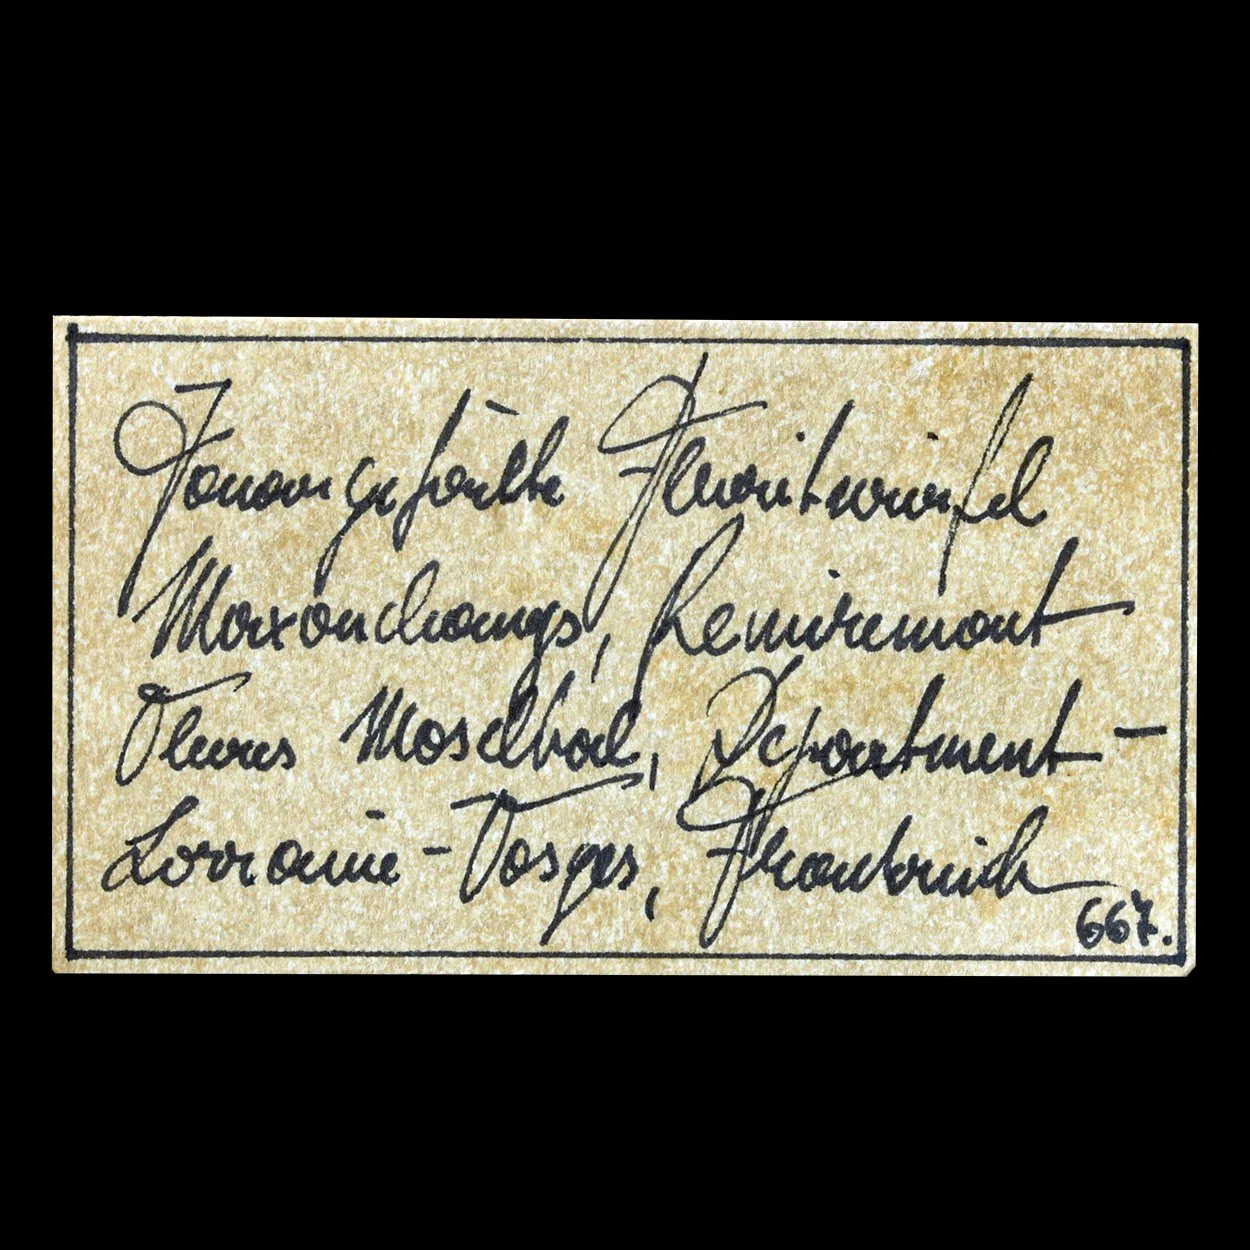 Zonargefärbte Fluoritwürfel
Maxonchamps, Remiremont
Oberes Moseltal, Department-
Lorraine-Vosges, Frankreich
667.